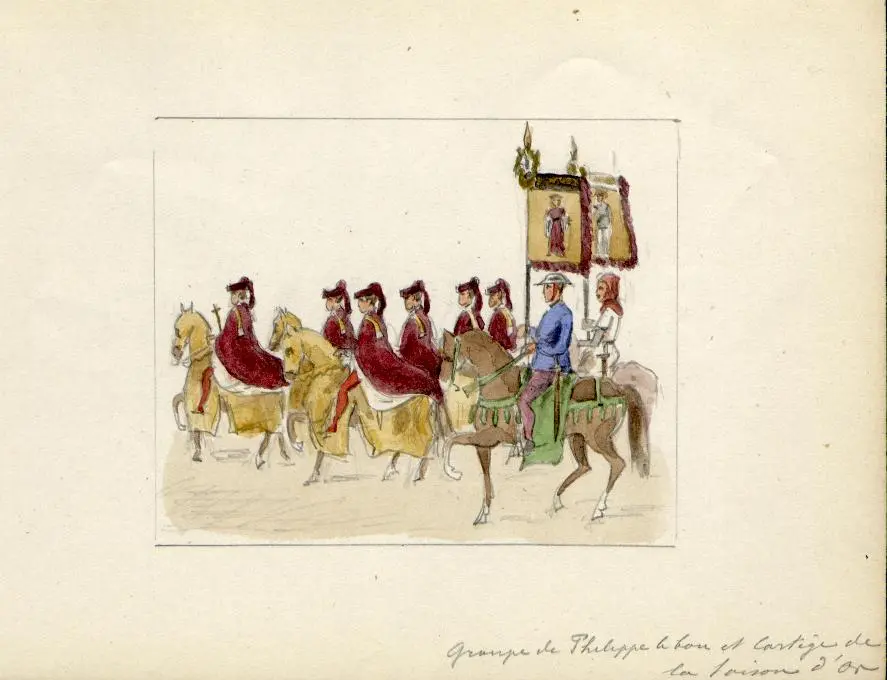 Groupe de Philippe le bon et Cortège de
la Toison d'Or